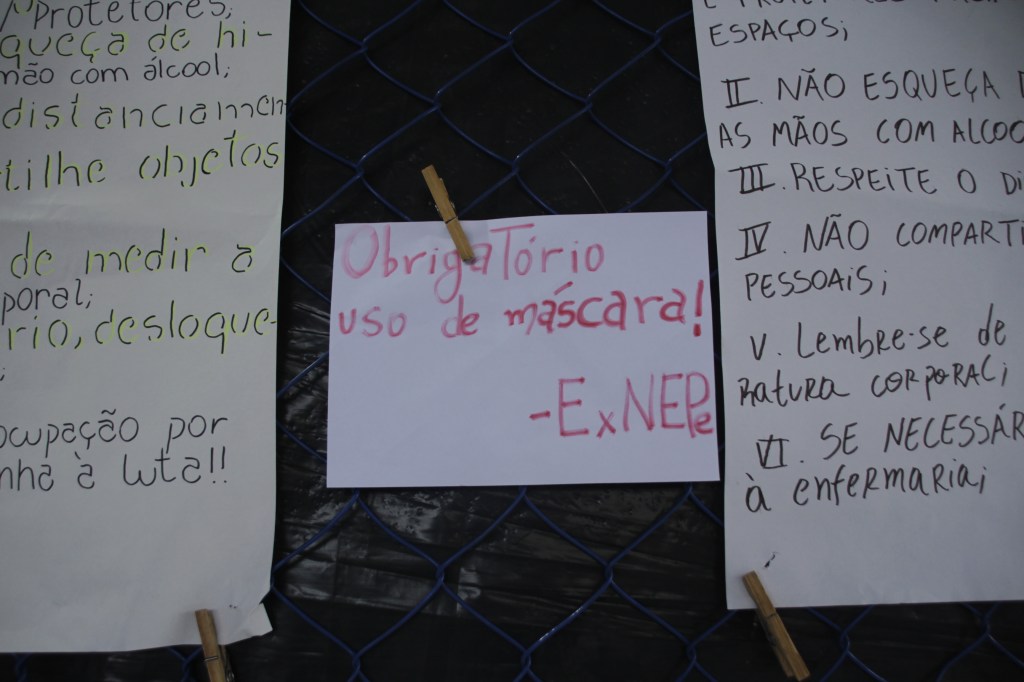 Protetores;
queça de hi-
mão com álcool;
distanciamen
tilhe objetos
de medir a
poral;
rio, desloque-
;
ocupação por
nha à luta!!
ObrigaTório
uso de máscara!
-ExNEPe
ESPAÇOS;
II. NÃO ESQUEÇA
AS MÃOS COM ALCOO
III. RESPEITE O Di
IV. NÃO COMPARTI
PESSOAIS;
V. Lembre-se de
RATURA CORPORAL;
VI. SE NECESSÁR
à enfermaria;